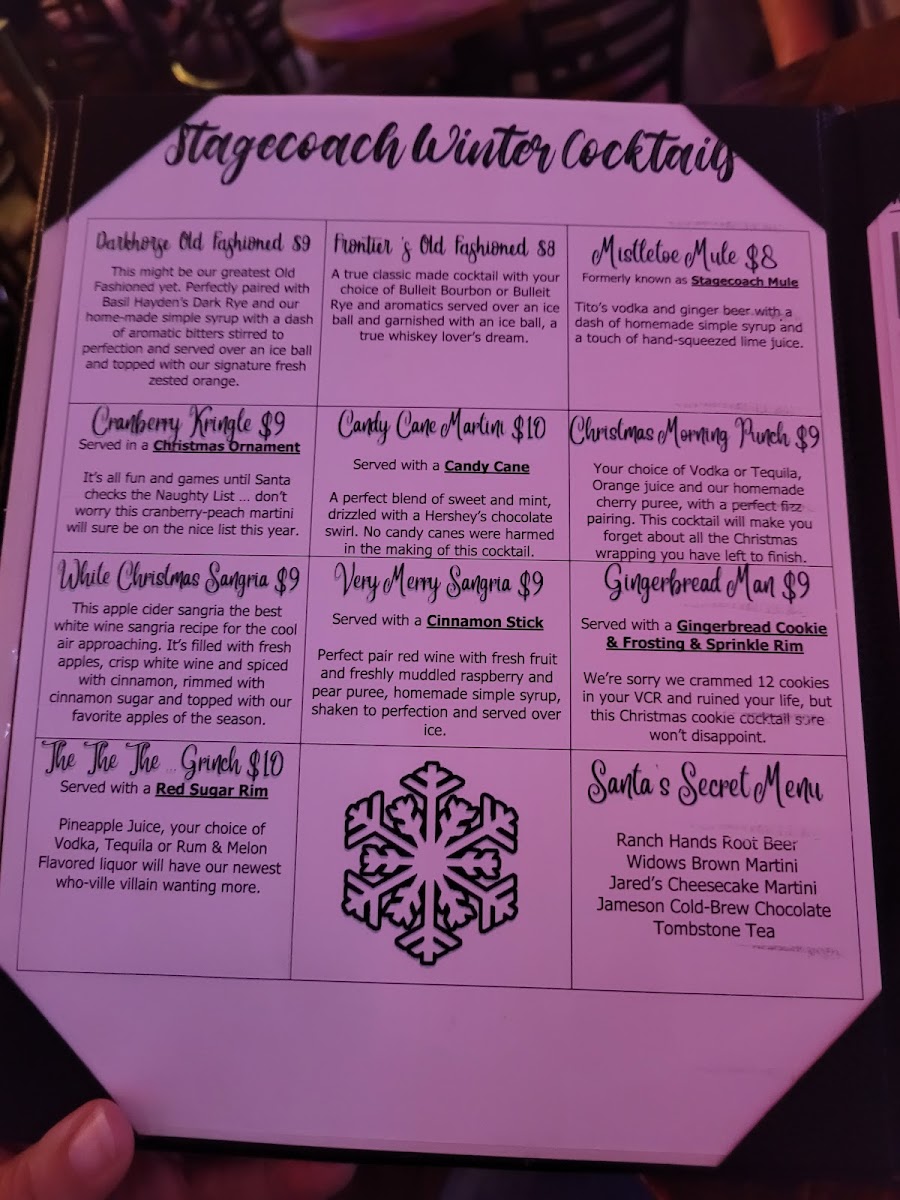 Stagecoach Winter Cocktails
Darkhorse Old Fashioned $9
This might be our greatest Old
Fashioned yet. Perfectly paired with
Basil Hayden's Dark Rye and our
home-made simple syrup with a dash
of aromatic bitters stirred to
perfection and served over an ice ball
and topped with our signature fresh
zested orange.
Frontier's Old Fashioned $8
A true classic made cocktail with your
choice of Bulleit Bourbon or Bulleit
Rye and aromatics served over an ice
ball and garnished with an ice ball, a
true whiskey lover's dream.
Mistletoe Mule $8
Formerly known as Stagecoach Mule
Tito's vodka and ginger beer with a
dash of homemade simple syrup and
a touch of hand-squeezed lime juice.
Cranberry Kringle $9
Served in a Christmas Ornament
It's all fun and games until Santa
checks the Naughty List ... don't
worry this cranberry-peach martini
will sure be on the nice list this year.
Candy Cane Martini $10
Served with a Candy Cane
A perfect blend of sweet and mint,
drizzled with a Hershey's chocolate
swirl. No candy canes were harmed
in the making of this cocktail.
Christmas Morning Punch $9
Your choice of Vodka or Tequila,
Orange juice and our homemade
cherry puree, with a perfect fizz
pairing. This cocktail will make you
forget about all the Christmas
wrapping you have left to finish.
White Christmas Sangria $9
This apple cider sangria the best
white wine sangria recipe for the cool
air approaching. It's filled with fresh
apples, crisp white wine and spiced
with cinnamon, rimmed with
cinnamon sugar and topped with our
favorite apples of the season.
Very Merry Sangria $9
Served with a Cinnamon Stick
Perfect pair red wine with fresh fruit
and freshly muddled raspberry and
pear puree, homemade simple syrup,
shaken to perfection and served over
ice.
Gingerbread Man $9
Served with a Gingerbread Cookie
& Frosting & Sprinkle Rim
We're sorry we crammed 12 cookies
in your VCR and ruined your life, but
this Christmas cookie cocktail sure
won't disappoint.
The The The ... Grinch $10
Served with a Red Sugar Rim
Pineapple Juice, your choice of
Vodka, Tequila or Rum & Melon
Flavored liquor will have our newest
who-ville villain wanting more.
Santa's Secret Menu
Ranch Hands Root Beer
Widows Brown Martini
Jared's Cheesecake Martini
Jameson Cold-Brew Chocolate
Tombstone Tea